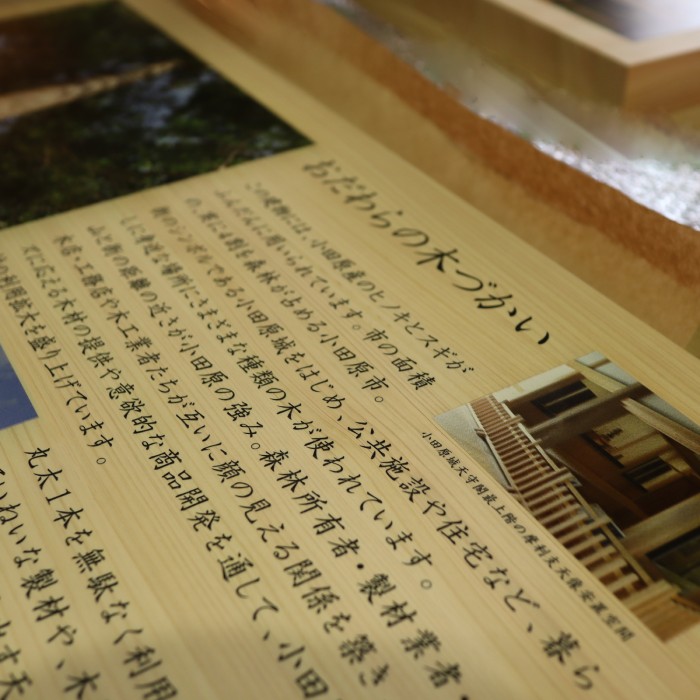 おだわらの木づかい
この建物には、小田原産のヒノキとスギが
ふんだんに用いられています。市の面積
の、実に4割を森林が占める小田原市。
街のシンボルである小田原城をはじめ、公共施設や住宅など、暮ら
しに身近な場所にさまざまな種類の木が使われています。
山と街の距離の近さが小田原の強み。森林所有者・製材業者・
木店・工務店や木工業者たちが互いに顔の見える関係を築き
でに応える木材の提供や意欲的な商品開発を通して、小田
の利用拡大を盛り上げています。
丸太1本を無駄なく利用
ていねいな製材や、木
小田原城天守閣最上階の摩利支天像安置空間